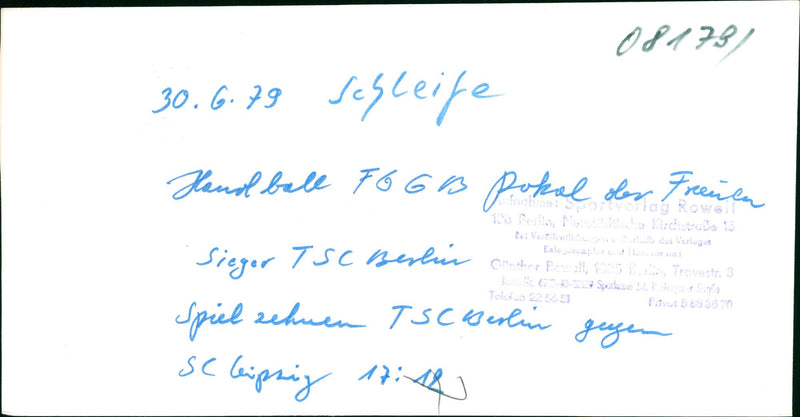 081791
30.6.79 Schleife
Handball FDGB Pokal der Frauen
Aufnahme: Sportverlag Rowell
108 Berlin, Neustädtische Kirchstraße 15
Bei Veröffentlichungen außerhalb des Verlages
Belegexemplar und Honorar an:
Günther Rowell, 1035 Berlin, Travestr. 3
Sieger TSC Berlin
Telefon 22 56 51 Privat 5 88 96 70
Spielzehnen TSC Berlin gegen
SC Leipzig 17:18